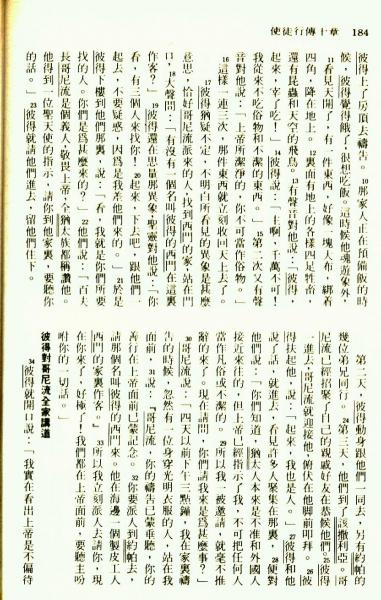 使徒行傳十章 184
得上了房頂去禱告。10那家人正在預備飯的時
候，彼得覺得餓了，很想吃飯。這時候他魂遊象外，
11看見天開了，有一件東西，好像一塊大布，綁着
四角，降在地上。12裏面有地上的各樣四足牲畜，
還有昆蟲和天空的飛鳥。13有聲音對他說：「彼得，
起來，宰了吃！」14彼得說：「主啊，千萬不可！
我從來不吃俗物和不潔的東西。」15第二次又有聲
音對他說：「上帝所潔淨的，你不可當作俗物。」
16這樣一連三次，那件東西就立刻收回天上去了。
17彼得猶疑不定，不明白所看見的異象是甚麼
意思，恰好哥尼流派來的人，找到西門的家，站在門
口，18大聲問：「有沒有一個名叫彼得的西門在這裏
作客？」19彼得還在思量那異象，聖靈對他說：「你
看，有三個人來找你！20起來，下去吧，跟他們一
起去，不要疑惑，因爲是我差他們來的。」21於是
彼得下樓到他們那裏，說：「看，我就是你們所要
找的人。你們是爲甚麼來的？」22他們說：「百夫
長哥尼流是個義人，敬畏上帝，全猶太族都稱讚他。
他得到一位聖天使的指示，請你到他家裏，要聽你
的話。」23彼得就請他們進去，留他們住下。
第二天，彼得動身跟他們一同去，另有約帕的
幾位弟兄同行。24第三天，他們到了該撒利亞。哥
尼流已經招聚了自己的親戚好友在恭候他們。25彼得
一進去，哥尼流就迎接他，俯伏在他脚前叩拜。26彼
得扶起他，說：「起來，我也是人。」27彼得和他
說了話，就進去，看見許多人聚集在那裏，28便對
他們說：「你們知道，猶太人本來是不准和外國人
接近來往的，但上帝已經指示了我，不可把任何人
當作凡俗或不潔的。29所以我一被邀請，就毫不推
辭的來了。現在請問，你們請我來是爲甚麼事？」
30哥尼流說：「四天以前下午三點鐘，我在家裏禱
告的時候，忽然有一位身穿光明衣服的人，站在我
面前，31說：『哥尼流，你的禱告已蒙垂聽，你的
善行在上帝面前已蒙記念。32你要派人到約帕去，
請那個名叫彼得的西門來。他在海邊一個製皮工人
西門的家裏作客。』33所以我立刻派人去請你，現
在你來了，好極了！我們都在上帝面前，要聽主吩
咐你的一切話。」
彼得對哥尼流全家講道
34彼得就開口說：「我實在看出上帝是不偏待